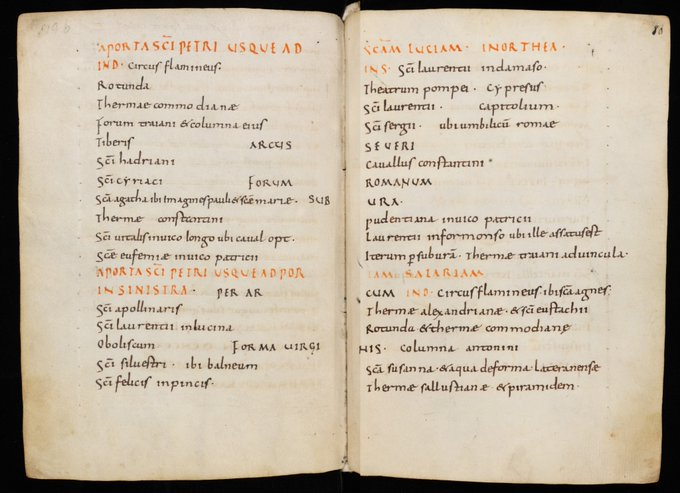 APORTA SCI PETRI USQUE AD
IND. Circus flamineus.
Rotunda
Thermae commodianae
Forum traiani & columna eius
Tiberis ARCUS
Sci hadriani
Sci cyriaci FORUM
Sca agatha ibi imagines pauli & scae mariae. SUB
Thermae constantini
Sci vitalis in vico longo ubi caval opt.
Scae eufemiae in vico patricii
APORTA SCI PETRI USQUE AD POR
IN SINISTRA. PER AR
Sci apollinaris
Sci laurentii in lucina
Oboliscum FORMA VIRGI
Sci silvestri. ibi balneum
Sci felicis in pincis.
80
SCAM LUCIAM. IN ORTHEA.
INS. Sci laurentii in damaso.
Theatrum pompei. Cypresus.
Sci laurentii. Capitolium.
Sci sergii. ubi umbilicum romae
SEVERI
Cavallus constantini
ROMANUM
URA.
pudentiana in vico patricii
Laurentii in formonso ubi ille assatus est
Iterum p subura. Thermae traiani ad vincula.
TAM SALARIAM
CUM IND. Circus flamineus. ibi sca agnes.
Thermae alexandrianae. & sci eustachii
Rotunda. & thermae commodianae
NIS. Columna antonini
Sca susanna. & aqua de forma lateranense
Thermae sallustianae & piramidem.